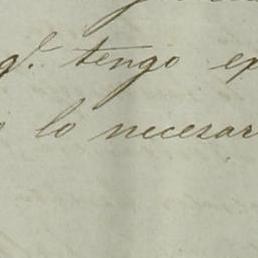 qᵉ. tengo ex
lo necesar